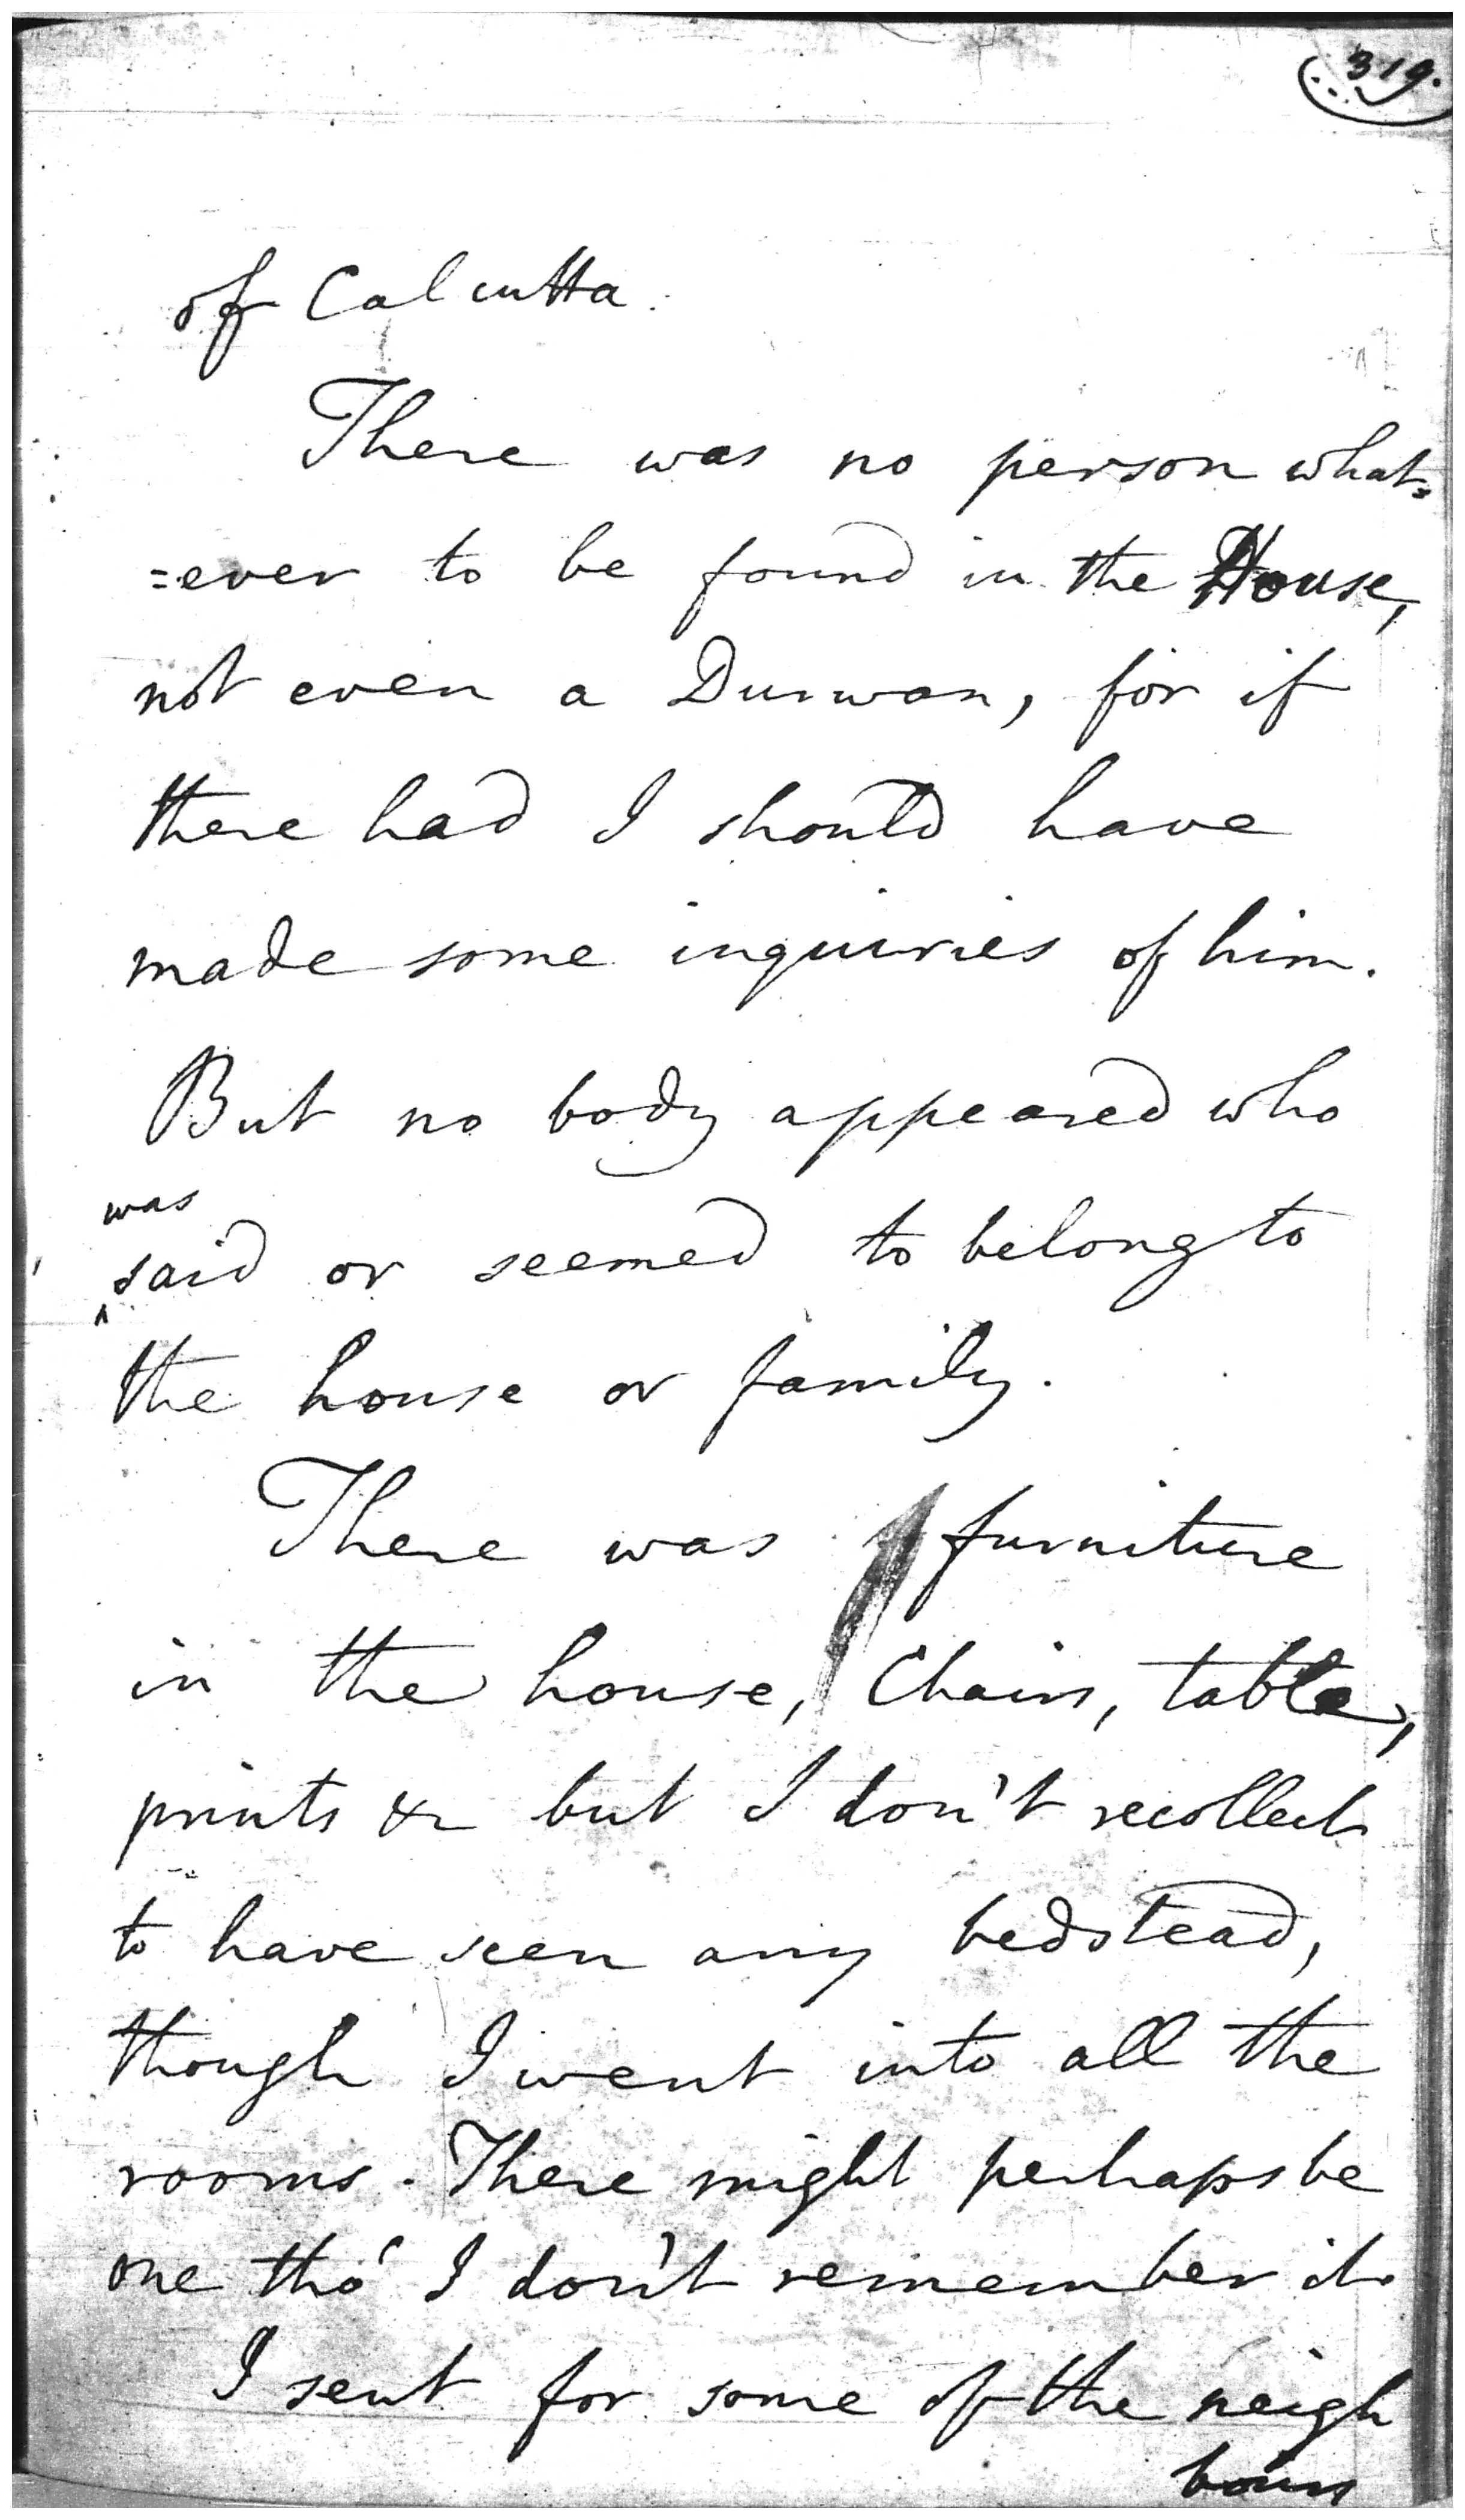 319.
of Calcutta.
There was no person what=
=ever to be found in the House,
not even a Durwan, for if
there had I should have
made some inquiries of him.
But no body appeared who
was
said or seemed to belong to
the house or family.
There was furniture
in the house, Chairs, table,
prints &c but I don't recollect
to have seen any bedstead,
though I went into all the
rooms. There might perhaps be
one tho' I don't remember it.
I sent for some of the neigh
bours